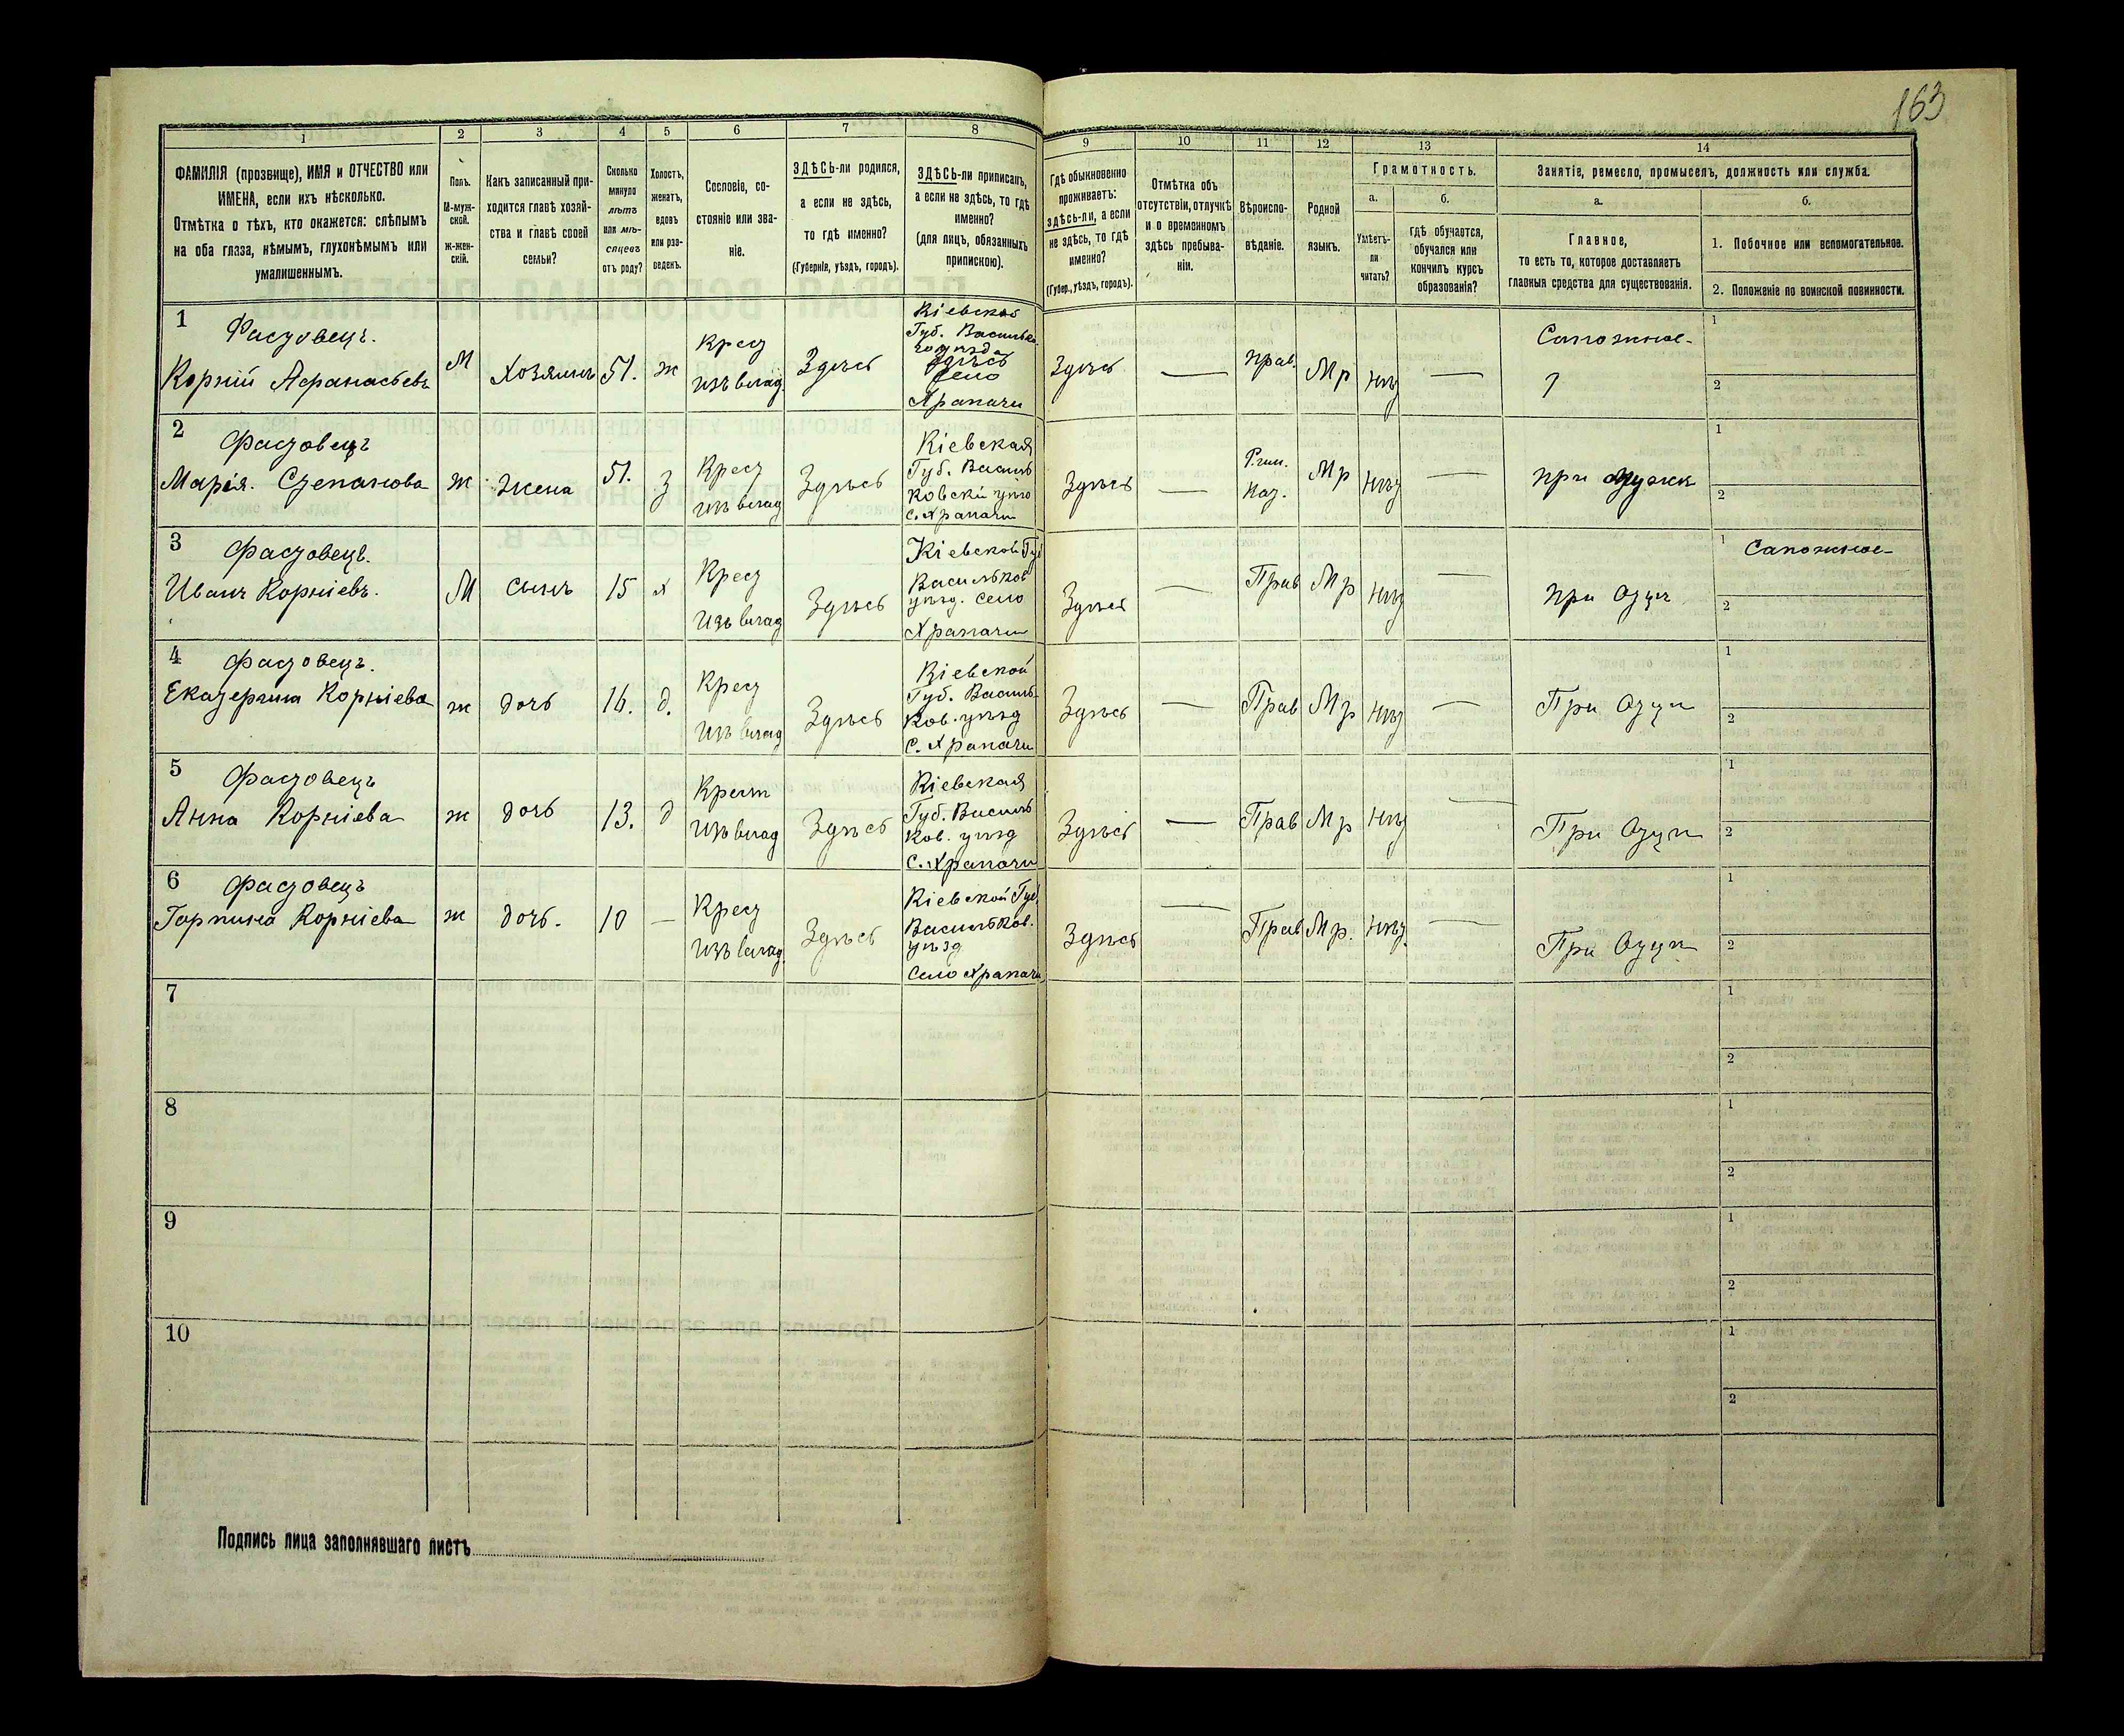 163
1
2
3
4
5
6
7
8
9
10
11
12
13
14
ФАМИЛІЯ (прозвище), ИМЯ и ОТЧЕСТВО или
ИМЕНА, если ихъ нѣсколько.
Отмѣтка о тѣхъ, кто окажется: слѣпымъ
на оба глаза, нѣмымъ, глухонѣмымъ или
умалишеннымъ.
Полъ.
М-муж-
ской.
ж-жен-
скій.
Какъ записанный при-
ходится главѣ хозяй-
ства и главѣ своей
семьи?
Сколько
минуло
лѣтъ
или мѣ-
сяцевъ
отъ роду?
Холостъ,
женатъ,
вдовъ
или раз-
веденъ.
Сословіе, со-
стояніе или зва-
ніе.
ЗДѢСЬ-ли родился,
а если не здѣсь,
то гдѣ именно?
(Губернія, уѣздъ, городъ).
ЗДѢСЬ-ли приписанъ,
а если не здѣсь, то гдѣ
именно?
(для лицъ, обязанныхъ
припискою).
Гдѣ обыкновенно
проживаетъ:
здѣсь-ли, а если
не здѣсь, то гдѣ
именно?
(Губер., уѣздъ, городъ).
Отмѣтка объ
отсутствіи, отлучкѣ
и о временномъ
здѣсь пребыва-
ніи.
Вѣроиспо-
вѣданіе.
Родной
языкъ.
Грамотность.
а.
Умѣетъ-
ли
читать?
б.
гдѣ обучается,
обучался или
кончилъ курсъ
образованія?
Занятіе, ремесло, промыселъ, должность или служба.
а.
Главное,
то есть то, которое доставляетъ
главныя средства для существованія.
б.
1. Побочное или вспомогательное.
2. Положеніе по воинской повинности.
1
Фастовецъ.
Корній Афанасьевъ
М
Хозяинъ
51.
ж
Крест
изъ влад
Здѣсь
Кіевской
Губ. Васильков
Село
Храпачи
Здѣсь
—
Прав.
Мр
Нѣт
—
Сапожное
1
2
2
Фастовецъ
Марія. Степанова
ж
Жена
51.
З
Крест
изъ влад
Здѣсь
Кіевская
Губ. Василь
ковскій
с. Храпачи
Здѣсь
—
Мр
Нѣт
—
при мужѣ
1
2
3
Фастовецъ.
Иванъ Корніевъ.
М
сынъ
15
х
Крест
Изъ влад
Здѣсь
Кіевской Губ
Васильков
уѣзд. село
Храпачи
Здѣсь
—
Прав
Мр
Нѣт
—
при Отцѣ
1
Сапожное
2
4
Фастовецъ.
Екатерина Корніева
ж
дочь
16.
д.
Крест
Изъ влад
Здѣсь
Кіевской
Губ. Василь
ков. уѣзд
с. Храпачи
Здѣсь
—
Прав
Мр
Нѣт
—
При Отцѣ
1
2
5
Фастовецъ
Анна Корніева
ж
дочь
13.
д
Крест
Изъ влад
Здѣсь
Кіевская
Губ. Василь
Ков. уѣзд
С. Храпачи
Здѣсь
—
Прав
Мр
Нѣт
—
При Отцѣ
1
2
6
Фастовецъ
Горпина Корніева
ж
дочь.
10
—
Крест
Изъ влад.
Здѣсь
Кіевской Губ.
Васильков.
уѣзд
Село Храпачи
Здѣсь
—
Прав
Мр.
Нѣт.
—
При Отцѣ
1
2
7
1
2
8
1
2
9
1
2
10
1
2
Подпись лица заполнявшаго листъ